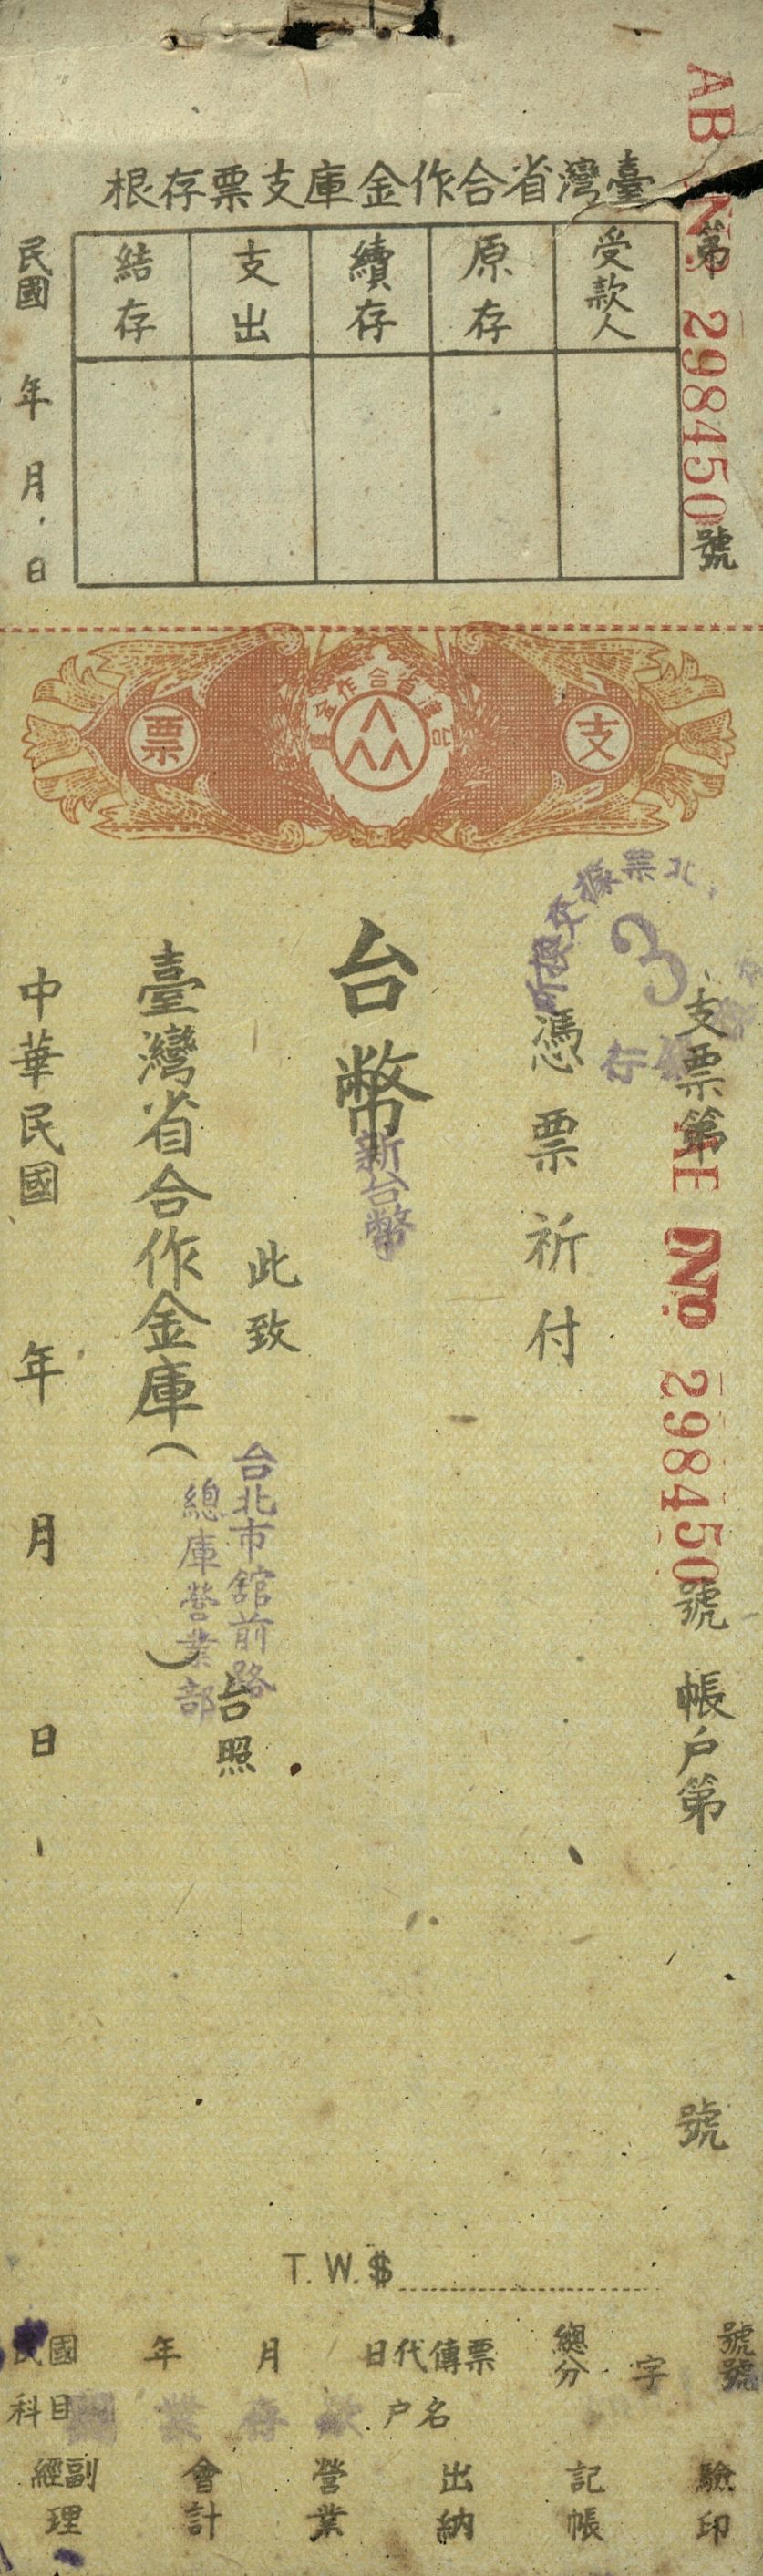 AB No 298450
第 號
臺灣省合作金庫支票存根
受款人
原存
續存
支出
結存
民國 年 月 日
支票
臺灣省合作金庫
支票第 號 帳戶第 號
No 298450
3
憑票祈付
台幣
新台幣
此致
臺灣省合作金庫( )台照
台北市舘前路
總庫營業部
中華民國 年 月 日
T. W. $
民國 年 月 日代傳票 總分 字 號號
科目 業存款 戶名
經副理 會計 營業 出納 記帳 驗印